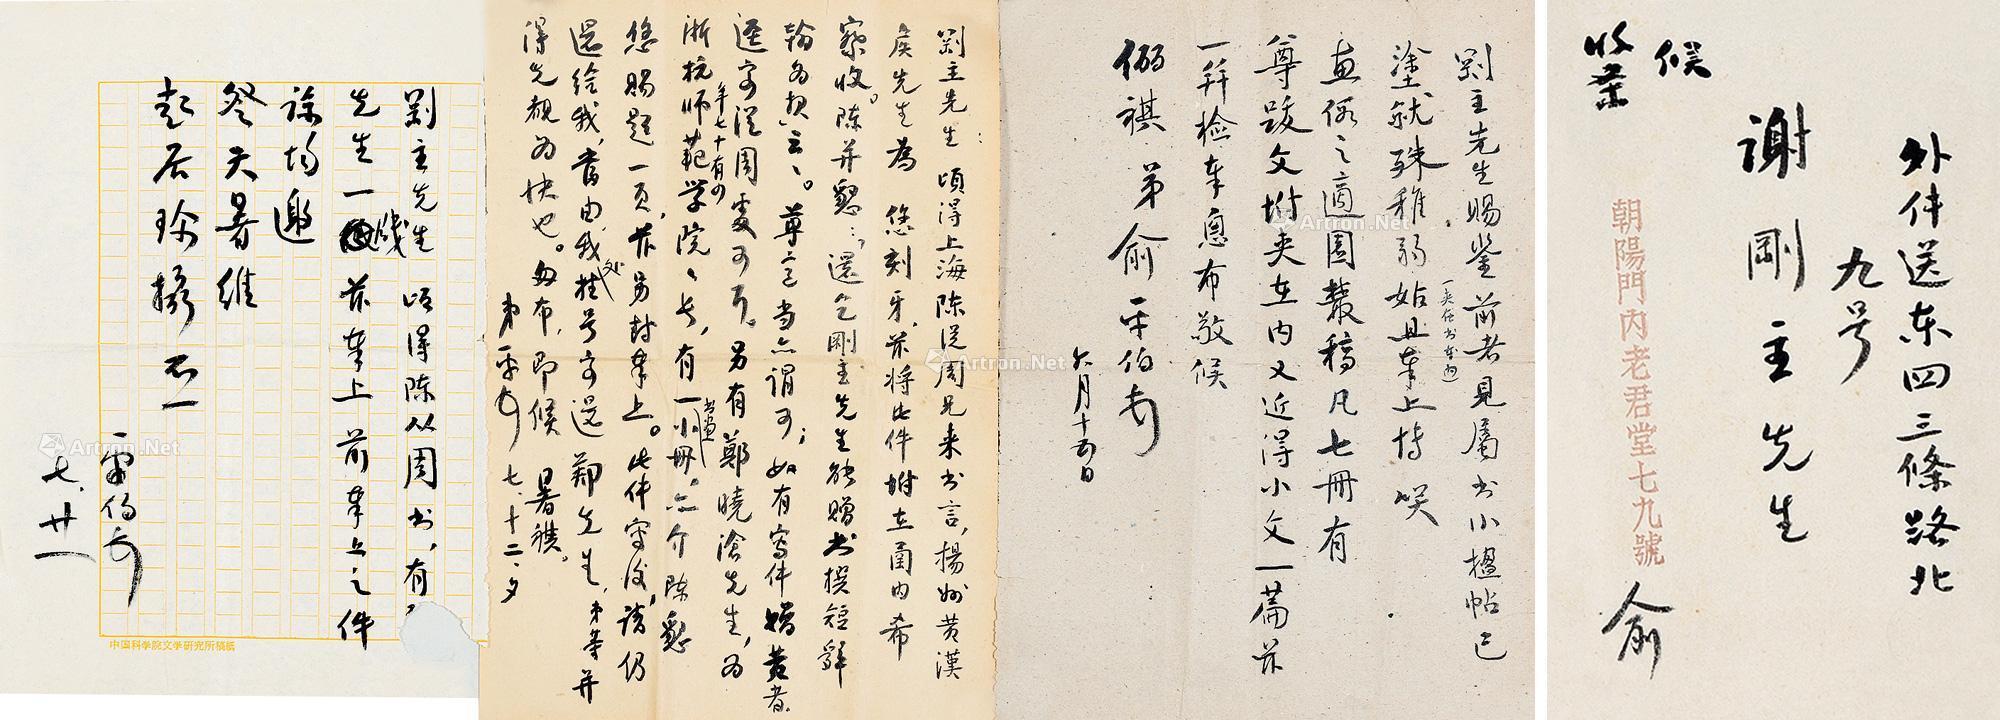 外件送东四三條路北
九号
謝剛主先生
候
收条
朝陽門内老君堂七九號
俞
剛主先生賜鉴前者見属书小楹帖已
塗就殊稚弱姑且奉上博咲
(一夹在书本内)
惠假之適園叢稿凡七冊有
尊跋文坿夹在内又近得小文一篇并
一并检奉息布敬候
俪祺 弟俞平伯
六月十五日
剛主先生:頃得上海陈從周兄来书言,揚州黄漢
侯先生為 您刻牙,并将此件坿在函内希
察收。陈并懇:還乞剛主先生能贈书撰短辞
翰为。尊意当亦谓可;如有寫件贈黄者,
逕寄從周處可耳。另有鄭曉滄先生,为
浙杭师范学院院长,有一小冊。亦介陈懇
年七十有
书画
您賜題一页,兹另封奉上。此件寄後,請仍
還给我,當由我处挂号寄還鄭先生,弟等并
得先覩为快也。匆布,即候 暑祺。
弟平 七、十二、夕
剛主先生 頃得陈从周书,有
先生一牋并奉上前奉上之件
諒均邀
詧天暑维
起居珍攝不一
平伯
七、廿一
中国科学院文学研究所稿紙
Artron.Net
Artron.Net
Artron.Net
Artron.Net